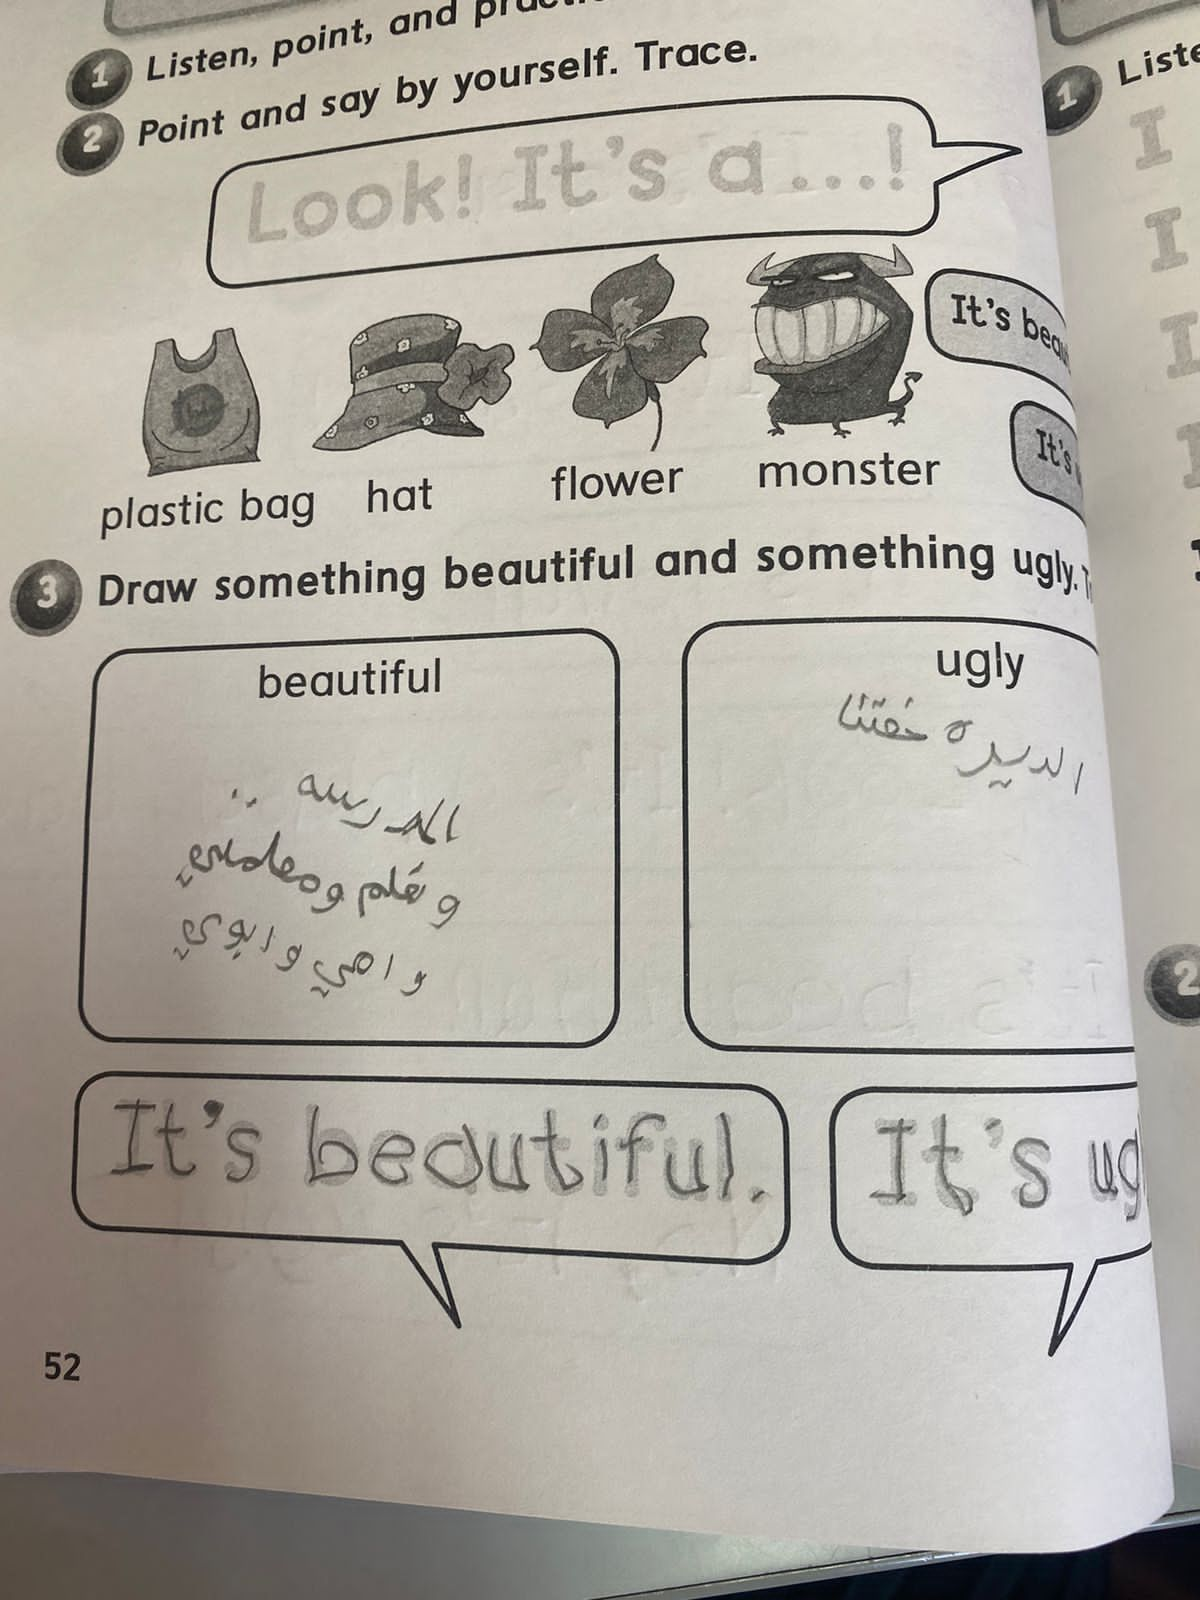 1 Listen, point, and
2 Point and say by yourself. Trace.
Look! It's a...!
plastic bag
hat
flower
monster
It's
It's
3 Draw something beautiful and something ugly.
beautiful
المدرسه ..
و قلم ومعلمتي
و امي و ابوي
ugly
الديرة حقتنا
It's beautiful.
It's
52
1
I
I
2